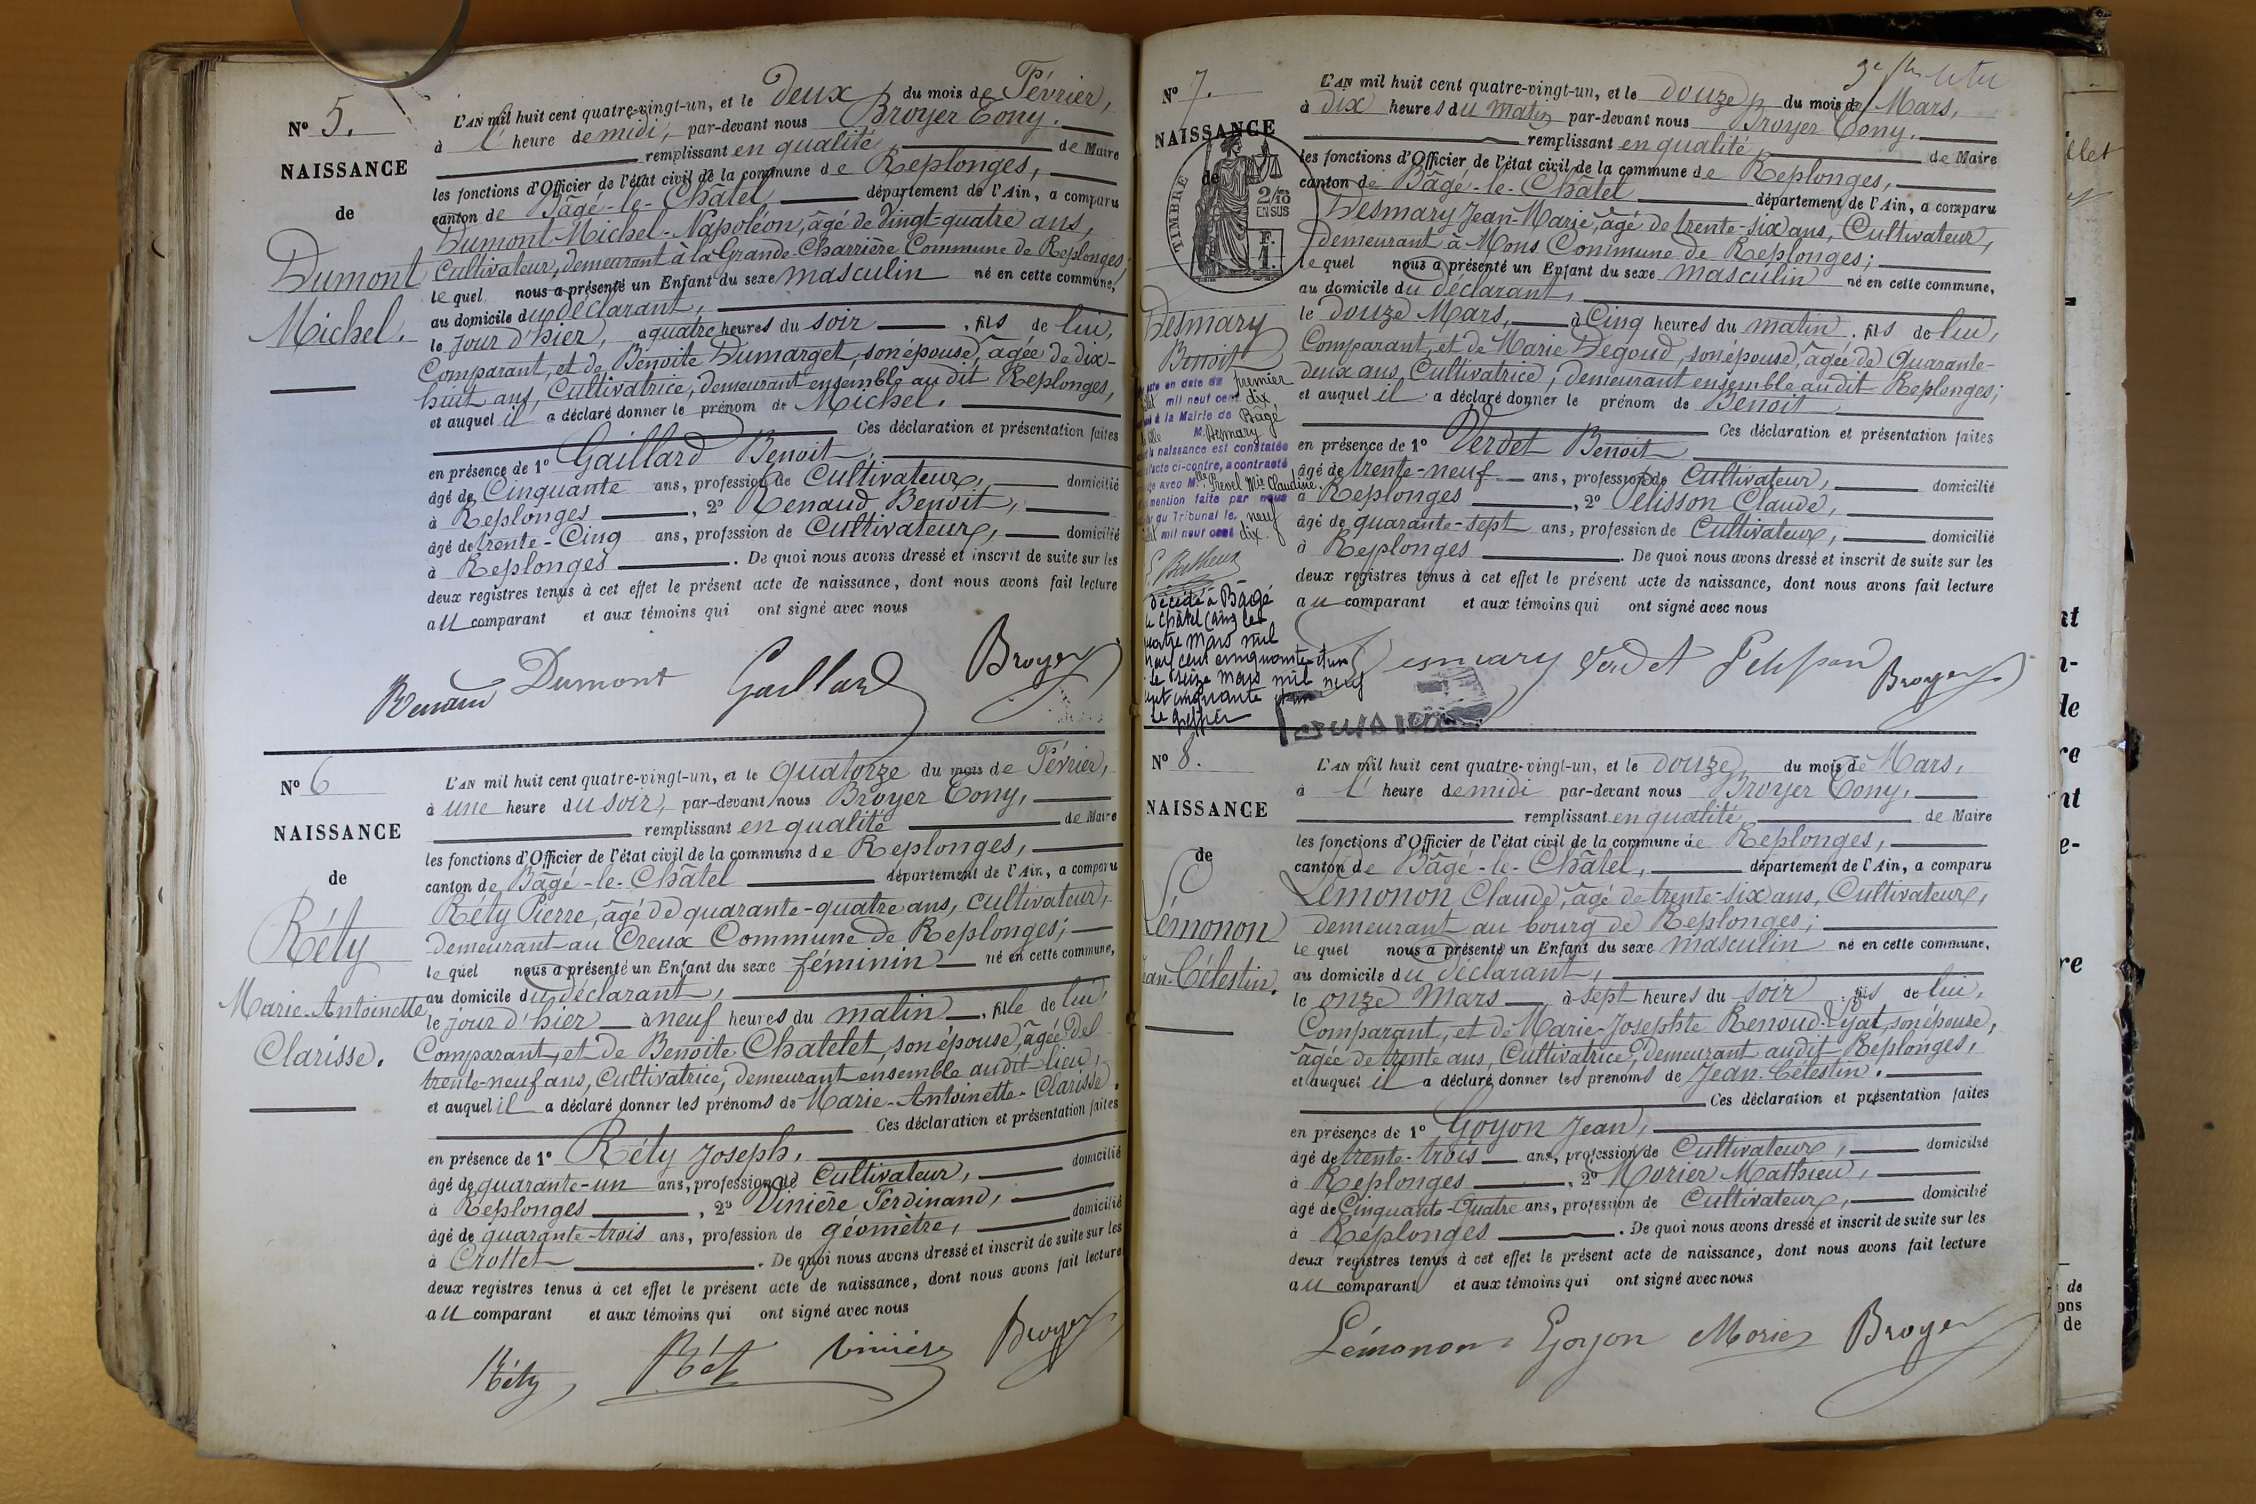 N° 5.
NAISSANCE
de
Dumont
Michel.
L'AN mil huit cent quatre-vingt-un, et le deux du mois de Février,
à l' heure de midi, par-devant nous Broyer Tony.
remplissant en qualité de Maire
les fonctions d'Officier de l'état civil de la commune de Replonges,
canton de Bâgé-le-Châtel département de l'Ain, a comparu
Dumont Michel-Napoléon, âgé de vingt-quatre ans,
Cultivateur, demeurant à la Grande Charrière Commune de Replonges
lequel nous a présenté un Enfant du sexe masculin né en cette commune,
au domicile du déclarant,
le jour d'hier, à quatre heures du soir, fils de lui,
Comparant, et de Benoite Dumarget, son épouse, âgée de dix-
huit ans, Cultivatrice, demeurant ensemble audit Replonges,
et auquel il a déclaré donner le prénom de Michel.
Ces déclaration et présentation faites
en présence de 1° Gaillard Benoit,
âgé de Cinquante ans, profession de Cultivateur, domicilié
à Replonges, 2° Renaud Benoit,
âgé de trente-Cinq ans, profession de Cultivateur, domicilié
à Replonges. De quoi nous avons dressé et inscrit de suite sur les
deux registres tenus à cet effet le présent acte de naissance, dont nous avons fait lecture
au comparant et aux témoins qui ont signé avec nous
Renaud Dumont Gaillard Broyer
N° 6
NAISSANCE
de
Réty
Marie-Antoinette
Clarisse.
L'AN mil huit cent quatre-vingt-un, et le quatorze du mois de Février,
à une heure du soir, par-devant nous Broyer Tony,
remplissant en qualité de Maire
les fonctions d'Officier de l'état civil de la commune de Replonges,
canton de Bâgé-le-Châtel département de l'Ain, a comparu
Réty Pierre, âgé de quarante-quatre ans, cultivateur,
demeurant au Creux Commune de Replonges;
lequel nous a présenté un Enfant du sexe féminin né en cette commune,
au domicile du déclarant,
le jour d'hier à neuf heures du matin, fille de lui
Comparant, et de Benoite Chatelet, son épouse, âgée de
trente-neuf ans, Cultivatrice, demeurant ensemble audit lieu,
et auquel il a déclaré donner les prénoms de Marie-Antoinette-Clarisse.
Ces déclaration et présentation faites
en présence de 1° Réty Joseph,
âgé de quarante-un ans, profession de Cultivateur, domicilié
à Replonges, 2° Vinière Ferdinand,
âgé de quarante-trois ans, profession de géomètre, domicilié
à Crottet. De quoi nous avons dressé et inscrit de suite sur les
deux registres tenus à cet effet le présent acte de naissance, dont nous avons fait lecture
au comparant et aux témoins qui ont signé avec nous
Réty Rét Vinière Broyer
N° 7.
NAISSANCE
de
TIMBRE
2/10
EN SUS
F.
1.
Desmary
Benoit
acte en date du premier
mil neuf cent dix,
à la Mairie de Bâgé
M. Desmary
naissance est constatée
l'acte ci-contre, a contracté
avec Mlle Prevel Mie Claudine.
mention faite par nous
du Tribunal le neuf
mil neuf cent dix.
Décédé à Bâgé
le Châtel (Ain) le
quatre Mars mil
neuf cent cinquante et un
le seize mars mil neuf
cent cinquante et un
Le greffier
L'AN mil huit cent quatre-vingt-un, et le douze du mois de Mars,
à dix heures du matin par-devant nous Broyer Tony.
remplissant en qualité de Maire
les fonctions d'Officier de l'état civil de la commune de Replonges,
canton de Bâgé-le-Châtel département de l'Ain, a comparu
Desmary Jean-Marie, âgé de trente-six ans, Cultivateur,
demeurant à Mons Commune de Replonges;
lequel nous a présenté un Enfant du sexe masculin né en cette commune,
au domicile du déclarant,
le douze Mars, à Cinq heures du matin, fils de lui,
Comparant, et de Marie Degoud, son épouse, âgée de Quarante-
deux ans, Cultivatrice, demeurant ensemble audit Replonges;
et auquel il a déclaré donner le prénom de Benoit
Ces déclaration et présentation faites
en présence de 1° Verdet Benoit
âgé de trente-neuf ans, profession de Cultivateur, domicilié
à Replonges, 2° Pélisson Claude,
âgé de quarante-sept ans, profession de Cultivateur, domicilié
à Replonges. De quoi nous avons dressé et inscrit de suite sur les
deux registres tenus à cet effet le présent acte de naissance, dont nous avons fait lecture
au comparant et aux témoins qui ont signé avec nous
Desmary Verdet Pelisson Broyer
N° 8.
NAISSANCE
de
Lémonon
Jean-Célestin.
L'AN mil huit cent quatre-vingt-un, et le douze du mois de Mars,
à l' heure de midi par-devant nous Broyer Tony,
remplissant en qualité de Maire
les fonctions d'Officier de l'état civil de la commune de Replonges,
canton de Bâgé-le-Châtel, département de l'Ain, a comparu
Lémonon Claude, âgé de trente-six ans, Cultivateur,
demeurant au bourg de Replonges;
lequel nous a présenté un Enfant du sexe masculin né en cette commune,
au domicile du déclarant,
le onze Mars, à sept heures du soir, fils de lui,
Comparant, et de Marie-Josephte Renoud-Lyat, son épouse,
âgée de trente ans, Cultivatrice, demeurant audit Replonges,
et auquel il a déclaré donner les prénoms de Jean-Célestin.
Ces déclaration et présentation faites
en présence de 1° Goyon Jean,
âgé de trente-trois ans, profession de Cultivateur, domicilié
à Replonges, 2° Morier Mathieu,
âgé de Cinquante-Quatre ans, profession de Cultivateur, domicilié
à Replonges. De quoi nous avons dressé et inscrit de suite sur les
deux registres tenus à cet effet le présent acte de naissance, dont nous avons fait lecture
au comparant et aux témoins qui ont signé avec nous
Lémonon Goyon Morier Broyer